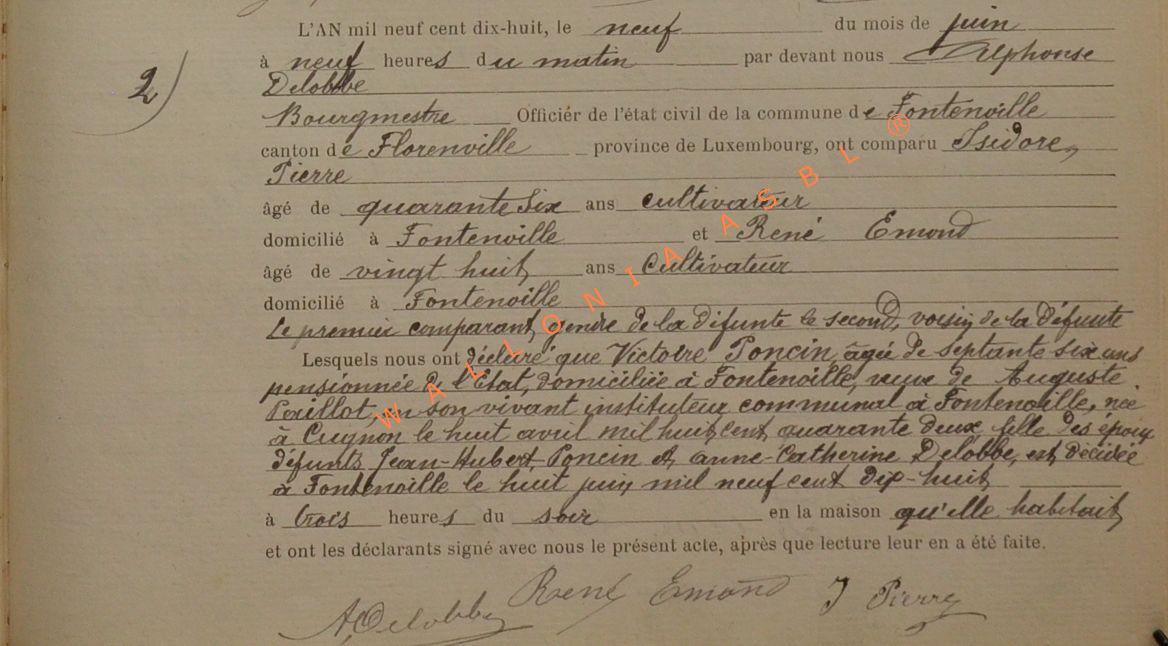 L'AN mil neuf cent dix-huit, le neuf du mois de juin
2)
à neuf heures du matin par devant nous Alphonse
Delobbe
Bourgmestre Officiér de l'état civil de la commune de Fontenoille
canton de Florenville province de Luxembourg, ont comparu Isidore
Pierre
âgé de quarante six ans cultivateur
domicilié à Fontenoille et René Emond
âgé de vingt huit ans Cultivateur
domicilié à Fontenoille
Le premier comparant, gendre de la défunte le second, voisin de la défunte
Lesquels nous ont déclaré que Victoire Poncin âgée de septante six ans
pensionnée de l'Etat, domiciliée à Fontenoille, veuve de Auguste
Paillot, en son vivant instituteur communal à Fontenoille, née
à Cugnon le huit avril mil huit cent quarante deux fille des époux
défunts Jean-Hubert Poncin et anne-Catherine Delobbe, est décédée
à Fontenoille le huit juin mil neuf cent dix-huit
à trois heures du soir en la maison qu'elle habitait
et ont les déclarants signé avec nous le présent acte, après que lecture leur en a été faite.
A Delobbe René Emond J Pierre
WALLONIA ASBL ®